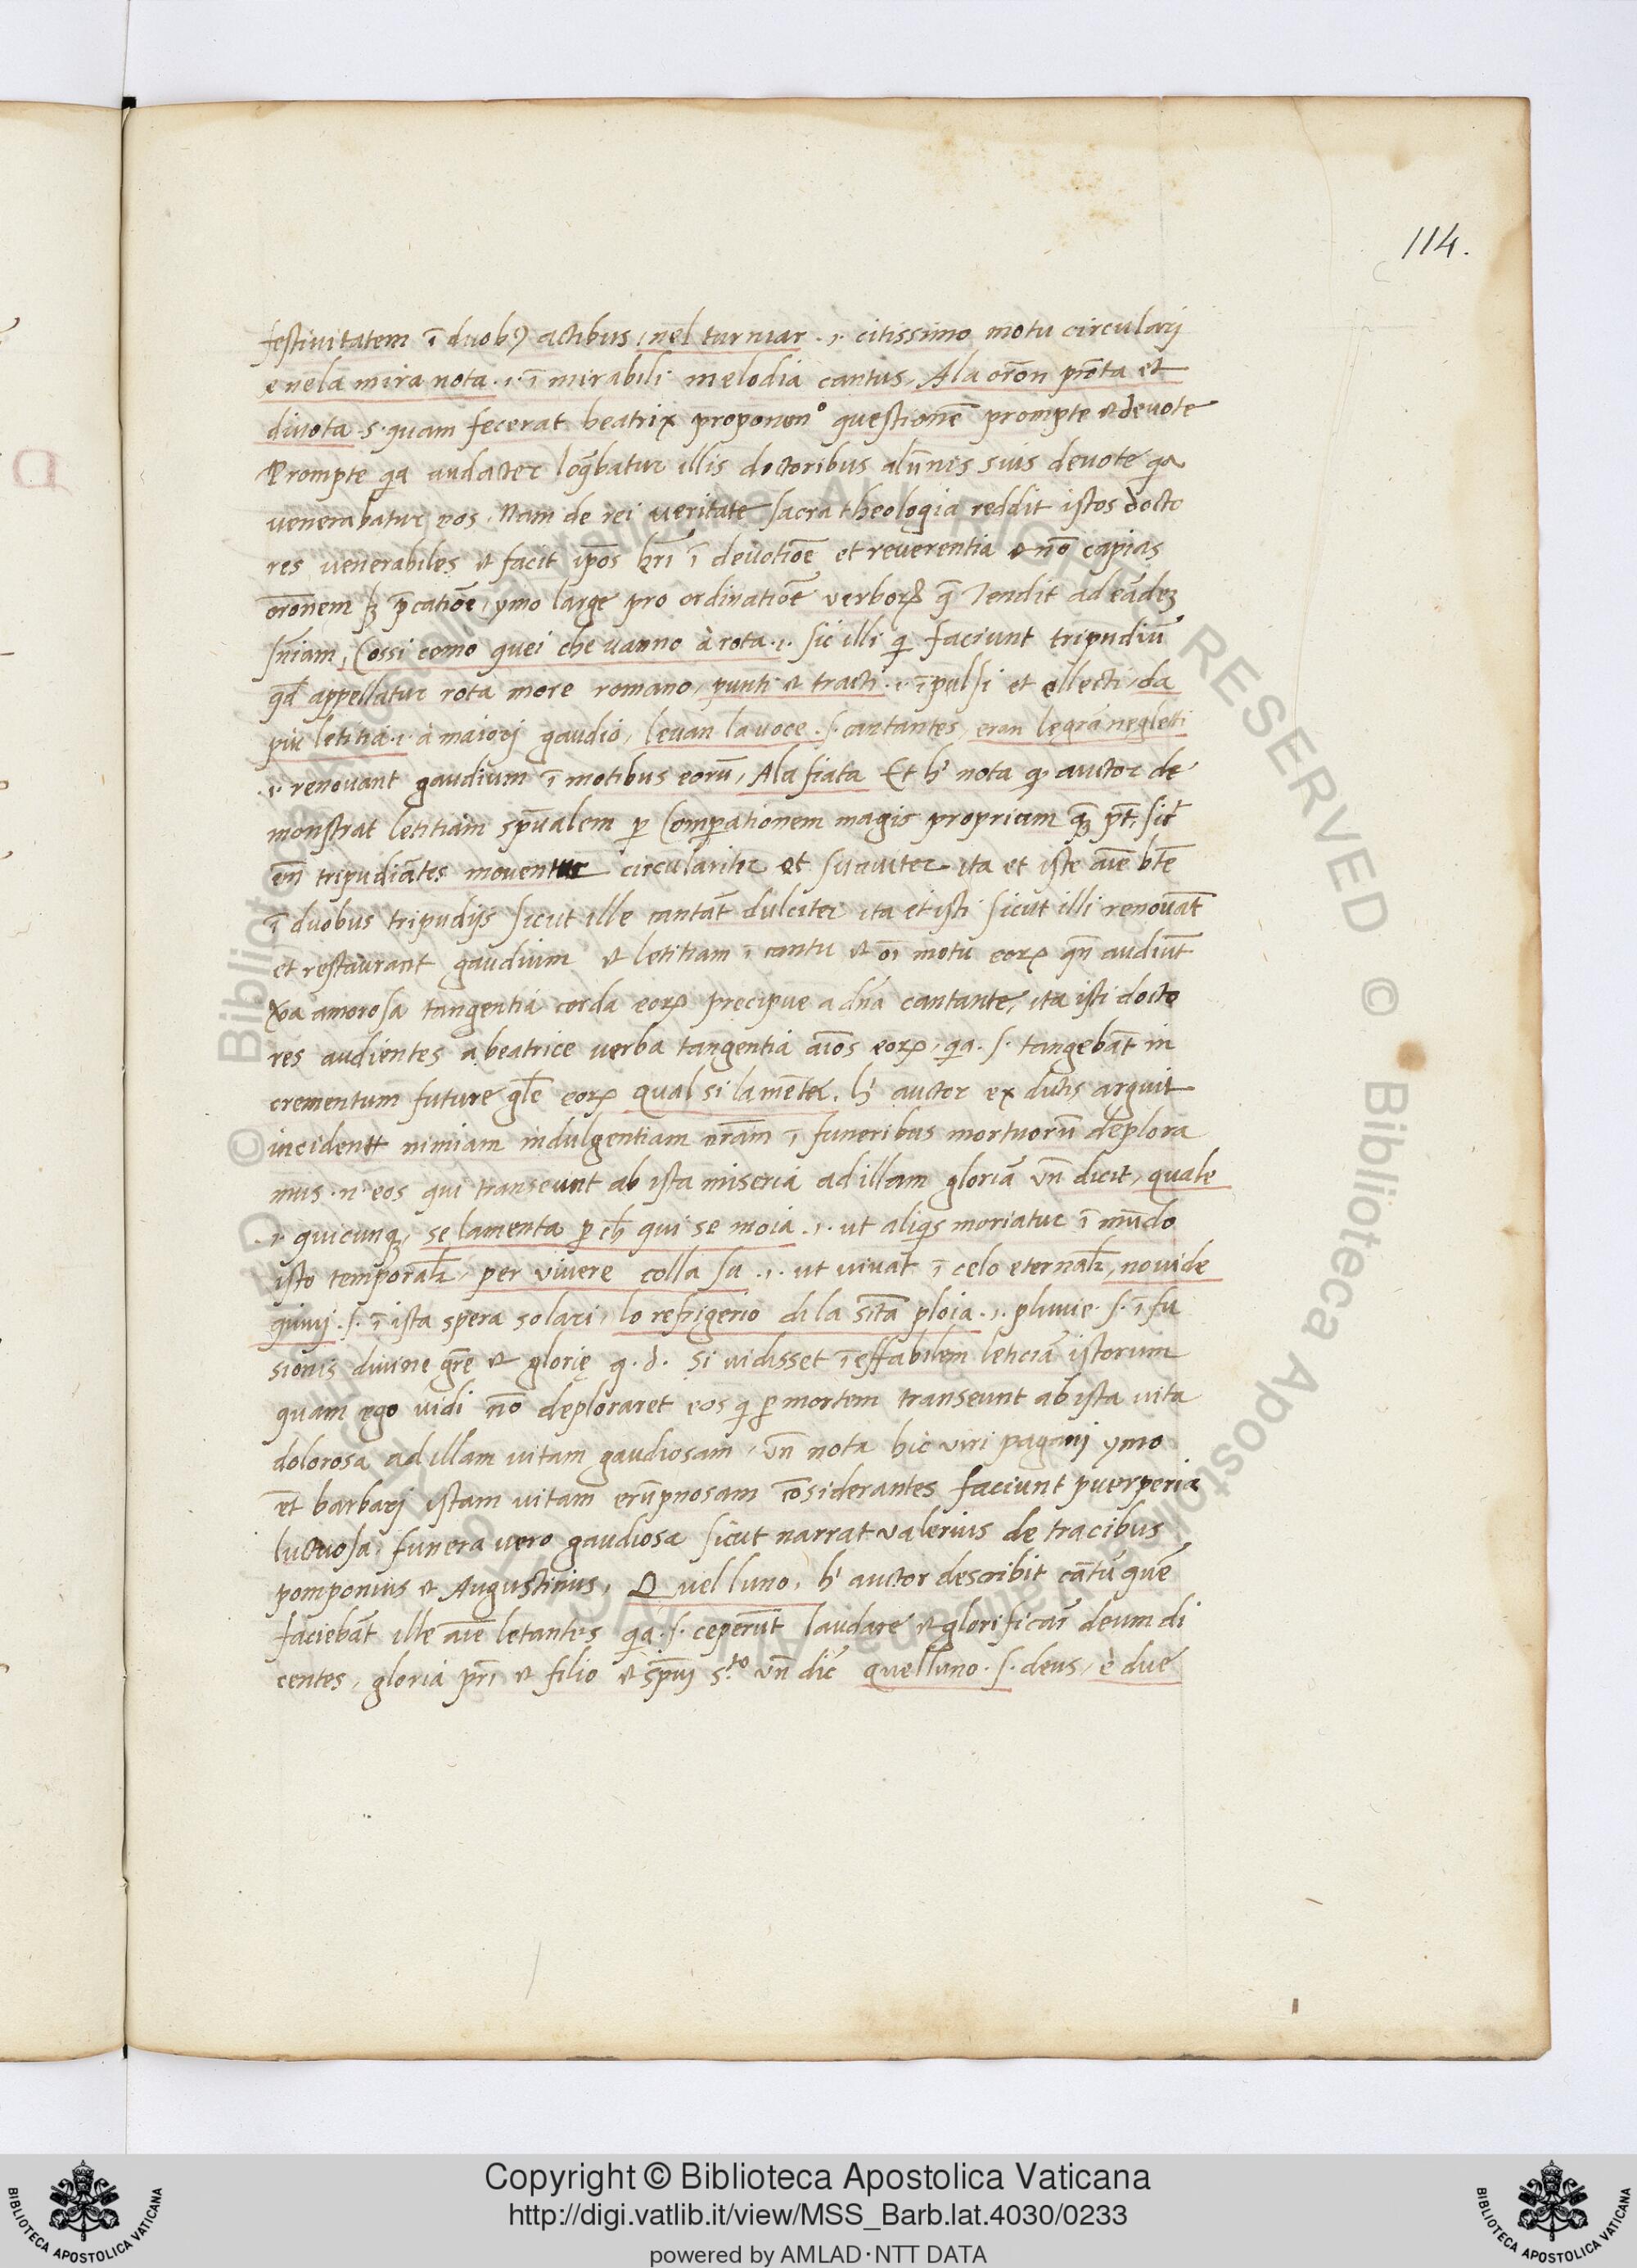 114.
festivitatem ī duob9 actibus, nel turniar .i. citissimo motu circularj
e nela mira nota .i. ī mirabili melodia cantus, Ala orōn prōta et
divota .s. quam fecerat beatrix proponenº questionē prompte et devote
Prompte qa audacter loqbatur illis doctoribus alūnis suis devote qa
venerabatur eos. Nam de rei veritate sacra theologia reddit istos docto
res venerabiles et facit ip̄os hr̄i ī devotiōe et reverentia et nō capias
orōnem pcatiōe, ymo large pro ordinatiōe verborꝝ q̄ tendit ad eādeꝫ
snīam, Cossi como quei che vanno à rota .i. sic illi qi faciunt tripudiū
qd appellatur rota more romano, punti et tracti .i. īpulsi et ellecti, da
piu letitia .i. à maiorj gaudio, levan la voce .s. cantantes, eran
.i. renovant gaudium ī motibus eorū, Ala fiata Et h' nota q auctor de
monstrat letitiam spūalem p Comparationem magis propriam qꝫ pt̄, sic̄
en̄ tripudiātes moventur circulariter et suaviter ita et iste aīe btē
ī duobus tripudijs sicut ille cantāt dulciter ita et isti sicut illi renovāt
et restaurant gaudium et letitiam ī cantu et oī motu eorꝝ qn̄ audiūt
vba amorosa tangentia corda eorꝝ precipue a dn̄a cantante, ita isti docto
res audientes a beatrice verba tangentia aīos eorꝝ, qa .s. tangebāt in
crementum future glē eorꝝ Qual si lamēter. h' auctor ex dictis arguit
incidentr nimiam indulgentiam nrām ī funeribus mortuorū deplora
mus .n. eos qui transeunt ab ista miseria ad illam gloriā vn̄ dicit, quale
.i. quicunqꝫ, se lamenta p ch qui se moia .i. ut aliqs moriatur ī mūdo
isto temporalr, per vivere colla su .i. ut vivat ī celo eternalr, no vide
quivj .s. ī ista spera solari, lo refrigerio di la sītā ploia .i. pluvie .s. īfu
sionis divine grē et glorię q. d. si vidisset īeffabilem leticiā istorum
quam ego vidi nō deploraret eos qi p mortem transeunt ab ista vita
dolorosa ad illam vitam gaudiosam, vn̄ nota hic viri paganj ymo
et barbarj istam vitam erūpnosam cōsiderantes faciunt puerperia
luctuosa, funera vero gaudiosa sicut narrat valerius de tracibus
pomponius et Augustinus, Quel luno, h' auctor describit cātū quē
faciebāt ille aīe letantes qa .s. ceperūt laudare et glorificār deum di
centes, gloria pri et filio et spūj s.to vn̄ dic̄ quelluno .s. deus, è due
Copyright © Biblioteca Apostolica Vaticana
http://digi.vatlib.it/view/MSS_Barb.lat.4030/0233
powered by AMLAD·NTT DATA
BIBLIOTECA APOSTOLICA VATICANA
BIBLIOTECA APOSTOLICA VATICANA